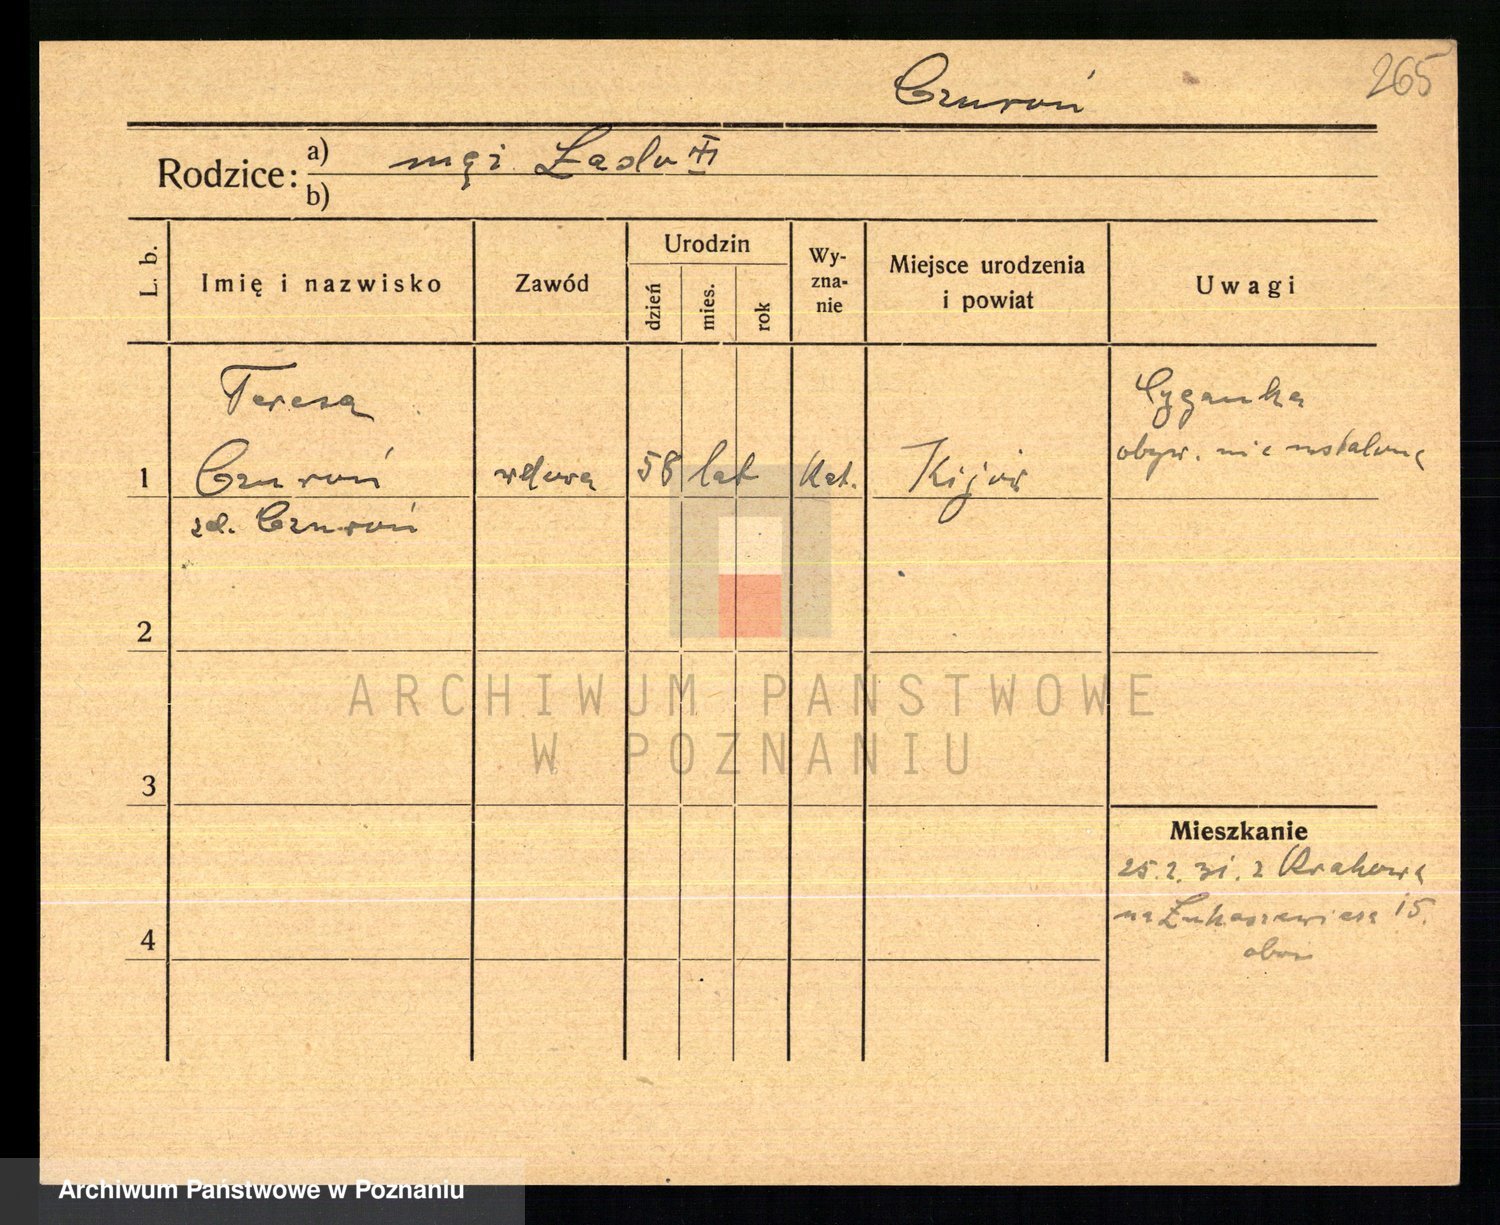 Czuroń
265
Rodzice:
a) mąż
b)
L. b.
Imię i nazwisko
Zawód
Urodzin
dzień
mies.
rok
Wy-
zna-
nie
Miejsce urodzenia
i powiat
Uwagi
Teresa
Cyganka
obyw. nie ustalone
1 Czuroń wdowa 58 lat kat. Kijów
zd. Czuroń
2
3
4
Mieszkanie
25.2.31. z Krakowa
na Łukaszewicza 15.
obóz
ARCHIWUM PAŃSTWOWE
W POZNANIU
Archiwum Państwowe w Poznaniu